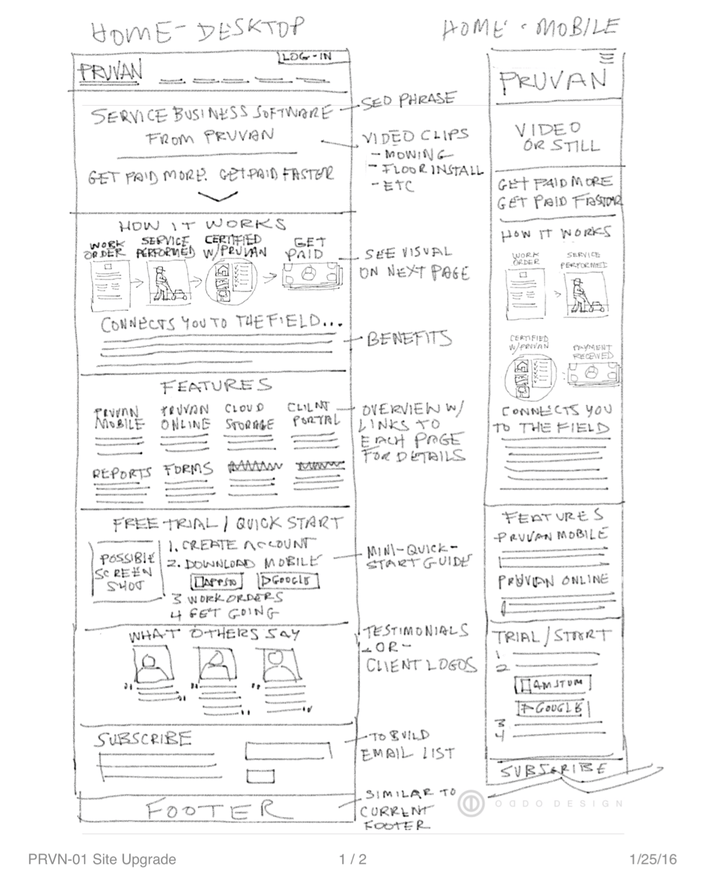 HOME-DESKTOP
LOG-IN
PRUVAN
SERVICE BUSINESS SOFTWARE
FROM PRUVAN
GET PAID MORE. GET PAID FASTER
HOW IT WORKS
WORK ORDER
SERVICE PERFORMED
CERTIFIED W/PRUVAN
GET PAID
CONNECTS YOU TO THE FIELD...
FEATURES
PRUVAN MOBILE
PRUVAN ONLINE
CLOUD STORAGE
CLIENT PORTAL
REPORTS
FORMS
FREE TRIAL / QUICK START
POSSIBLE
SCREEN
SHOT
1. CREATE ACCOUNT
2. DOWNLOAD MOBILE
GOOGLE
3 WORKORDERS
4 GET GOING
WHAT OTHERS SAY
" " " " " "
SUBSCRIBE
FOOTER
SEO PHRASE
VIDEO CLIPS
- MOWING
- FLOOR INSTALL
- ETC
SEE VISUAL
ON NEXT PAGE
BENEFITS
OVERVIEW W/
LINKS TO
EACH PAGE
FOR DETAILS
MINI-QUICK-
START GUIDE
TESTIMONIALS
-OR-
CLIENT LOGOS
TO BUILD
EMAIL LIST
SIMILAR TO
CURRENT
FOOTER
HOME - MOBILE
PRUVAN
VIDEO
OR STILL
GET PAID MORE
GET PAID FASTER
HOW IT WORKS
WORK ORDER
SERVICE PERFORMED
CERTIFIED W/PRUVAN
PAYMENT RECEIVED
CONNECTS YOU
TO THE FIELD
FEATURES
-PRUVAN MOBILE
PRUVAN ONLINE
TRIAL/START
1
2
GOOGLE
3
4
SUBSCRIBE
ODDO DESIGN
PRVN-01 Site Upgrade
1 / 2
1/25/16